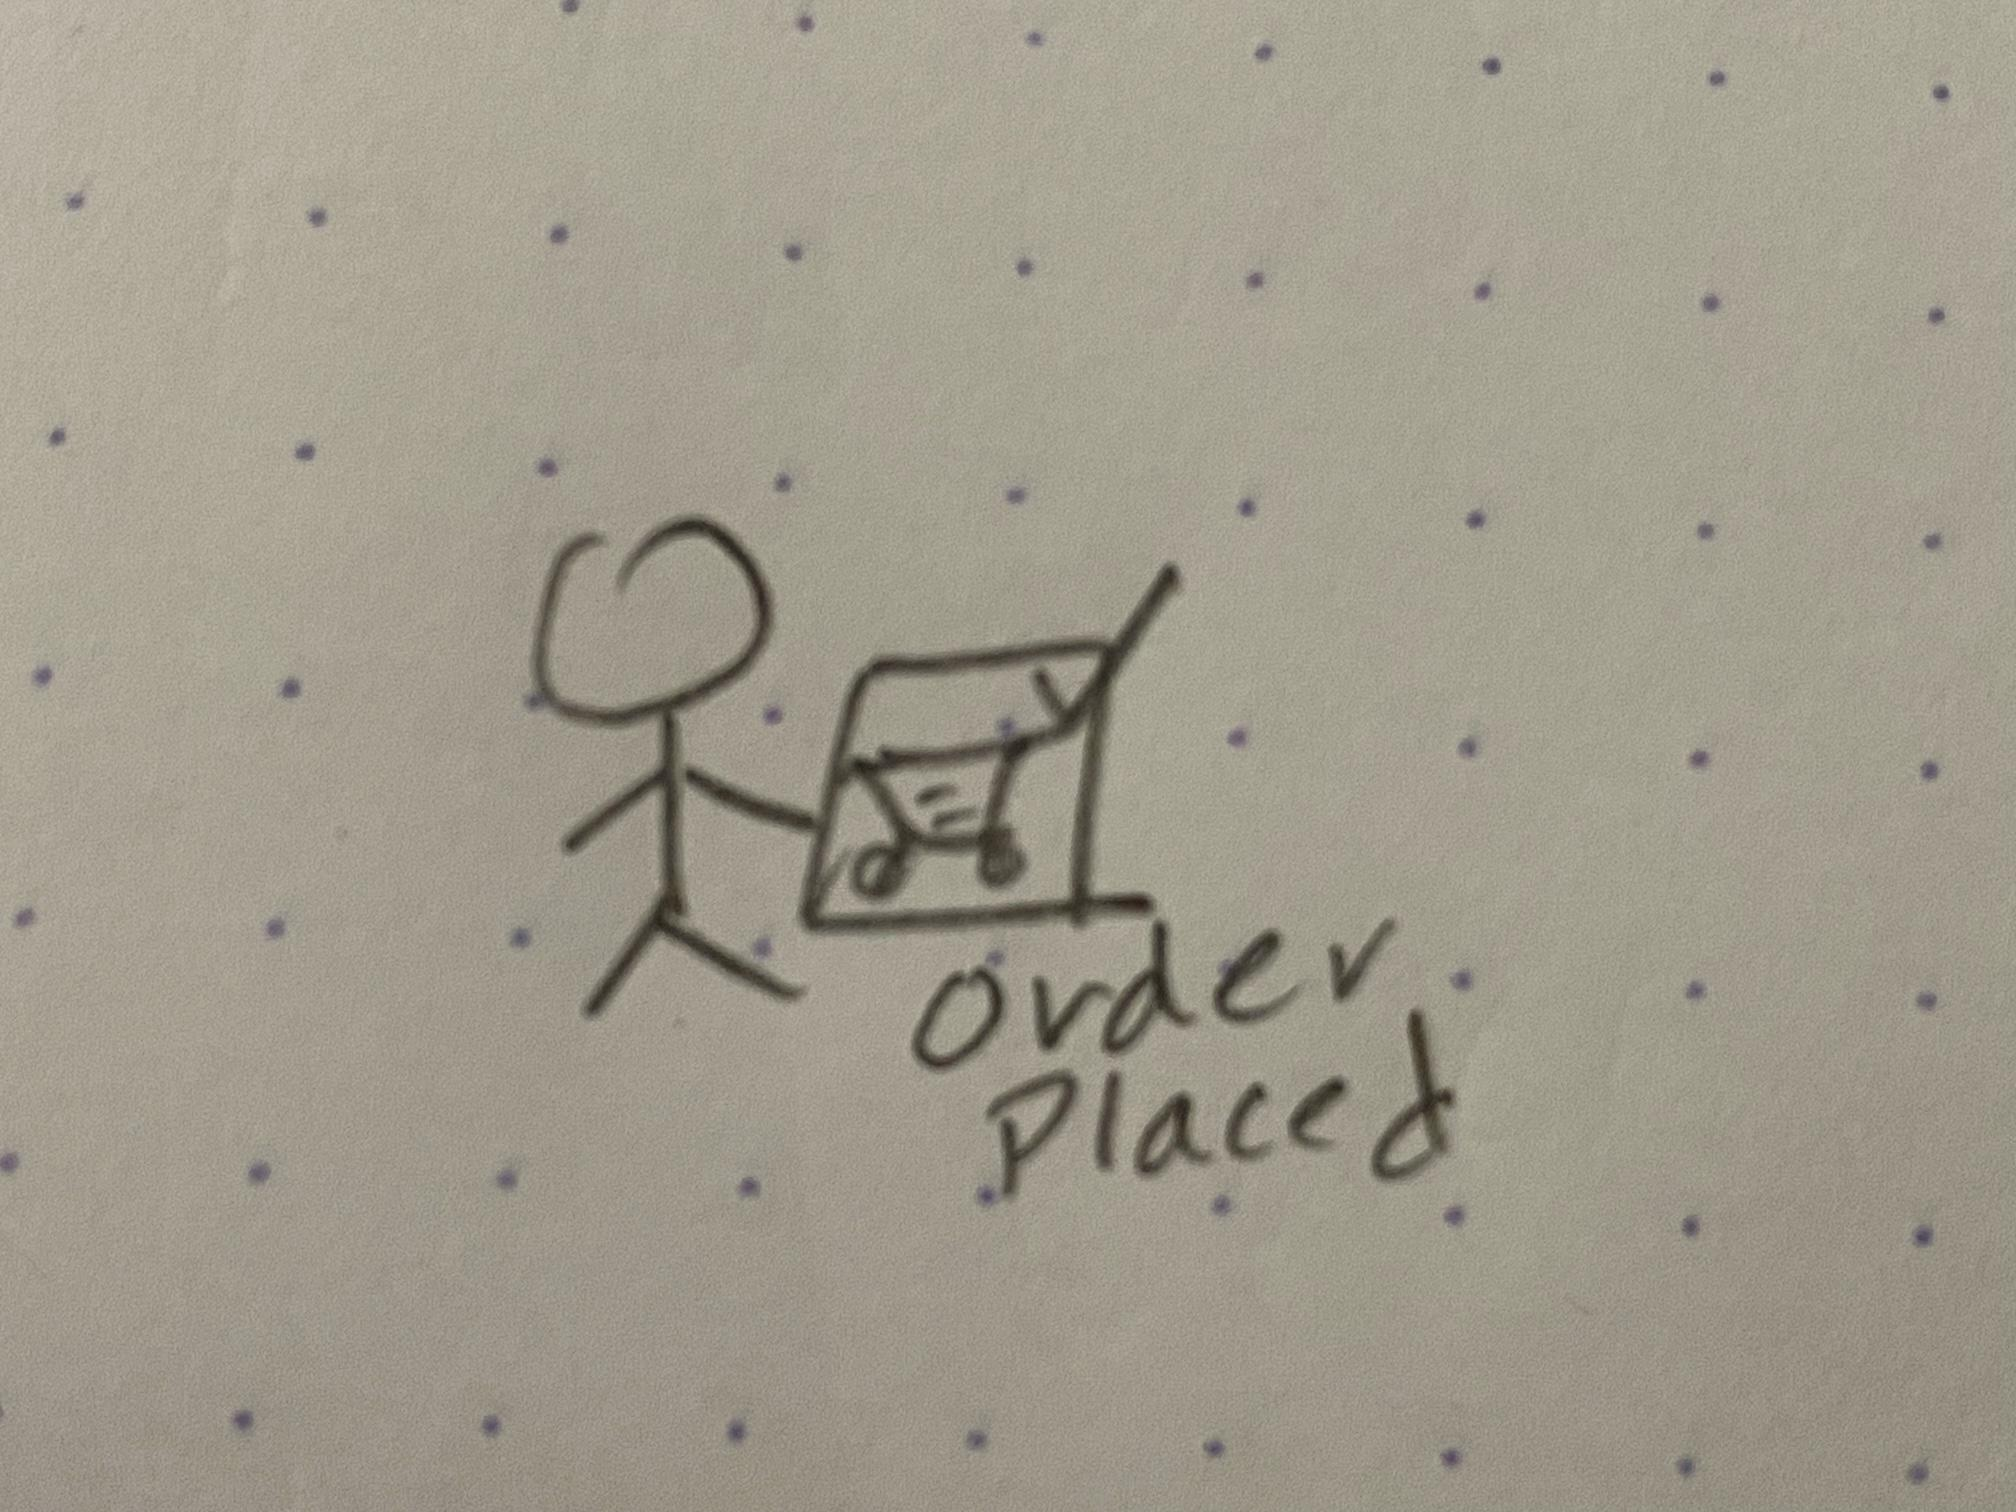 order
placed